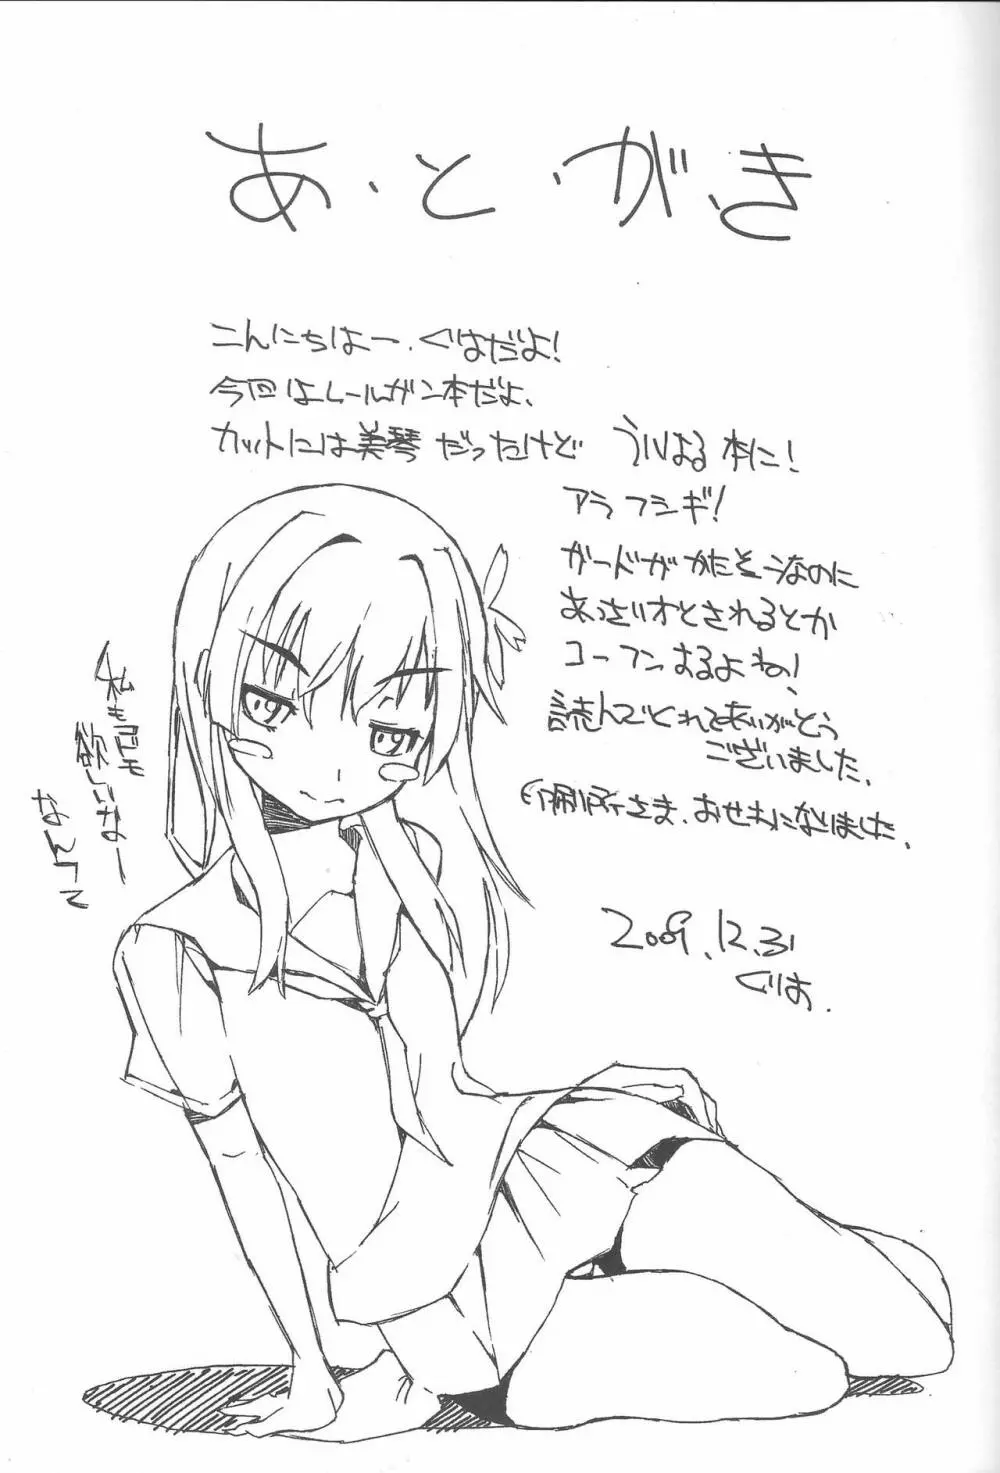 あ・と・が・き
こんにちはー、ぐりはだよ！
今回はレールガン本だよ、
カットには美琴だったけど ういはる本に！
アラフシギ！
ガードがかたそーなのに
あっさりオとされるとか
コーフンするよね！
読んでくれてありがとう
ございました、
印刷所さま、おせわになりました、
2009.12.31
ぐりは、
私も
欲しいなー